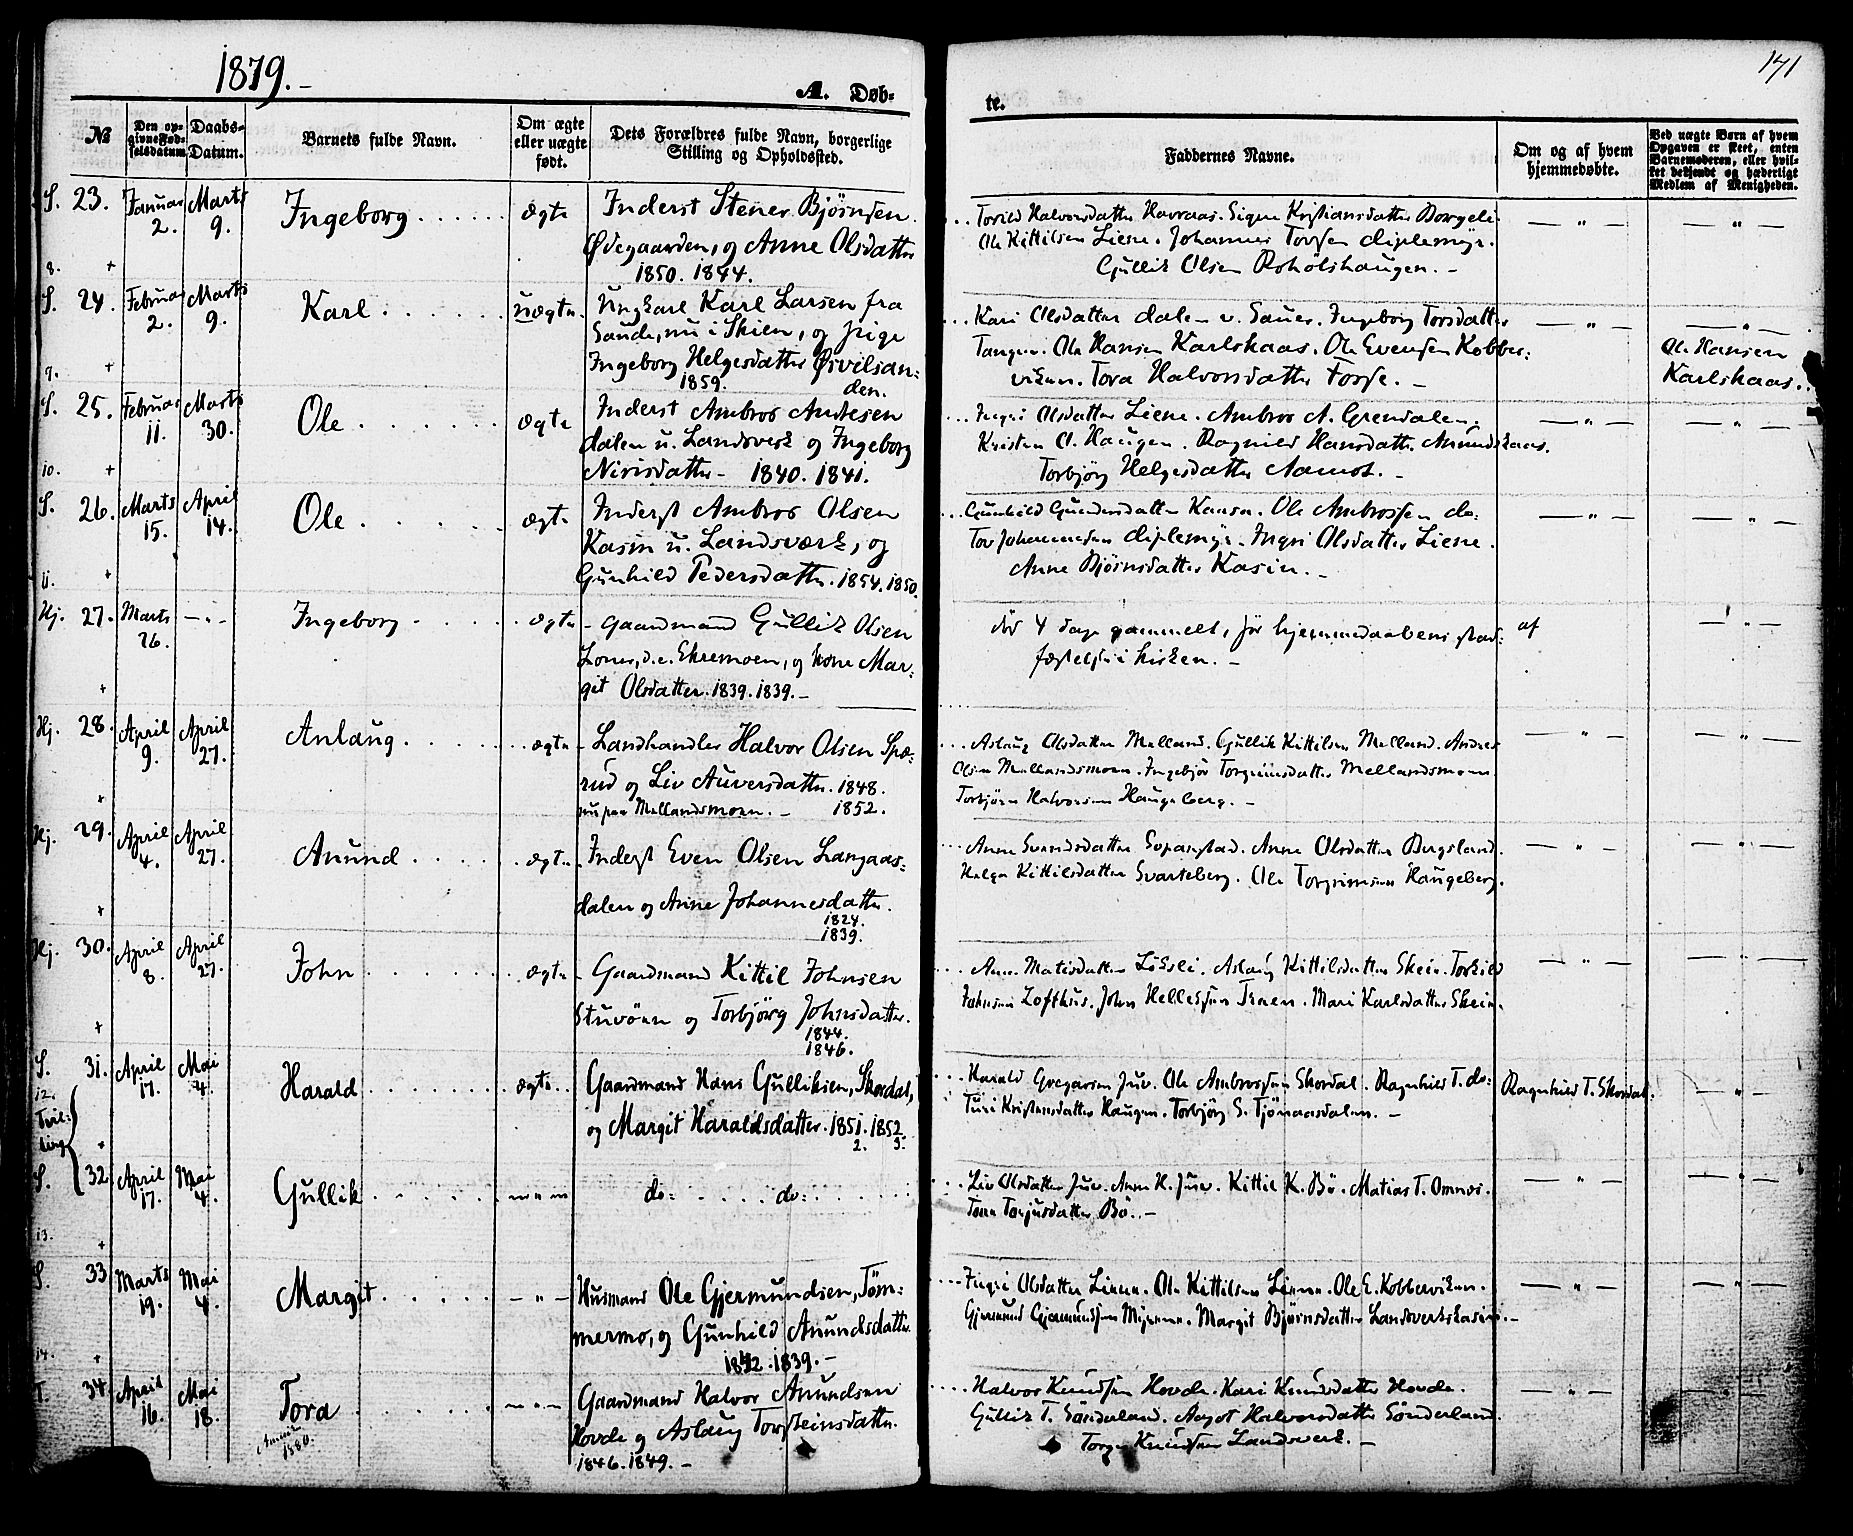 1879.-
A. Døb-
te.
171
№
Den op-
givne Fød-
selsdatum
Daabs-
Datum.
Barnets fulde Navn.
Om ægte
eller uægte
født.
Dets Forældres fulde Navn, borgerlige
Stilling og Opholdssted.
Faddernes Navne.
Om og af hvem
hjemmedøbte.
Ved uægte Børn af hvem
Opgaven er skeet, enten
Barnemoderen, eller hvil-
ket bekjendt og hæderligt
Medlem af Menigheden.
S. 23. Januar 2. Marts 9. Ingeborg ægte Inderst Stener Bjørnsen
Ødegaarden, og Anne Olsdatter
1850. 1844.
8.
Torild Halvorsdatter Havraas. Signe Kristiansdatter Borgeli
Ole Kittilsen Liene. Johannes Torsen Diplemyr.
Gullik Olsen Roholdshaugen. -
S. 24. Februar 2. Marts 9. Karl uægte. Ungkarl Karl Larsen fra
Saude, nu i Skien, og pige
Ingeborg Helgesdatter Øvilsan-
1859. den.
9.
Kari Olsdatter Dalen v. Sauer. Ingeborg Torsdatter
Tangen. Ole Hansen Karlskaas. Ole Evensen Kobber-
viken. Tora Halvorsdatter Fosse. -
Ole Hansen
Karlskaas.
S. 25. Februar 11. Marts 30. Ole ægte Inderst Ambros Andresen
Dalen u. Landsverk og Ingeborg
Nirisdatter - 1840. 1841.
10.
Ingri Olsdatter Liene. Ambros A. Grendalen,
Kristen A. Haugen. Ragnild Hansdatter Anundskaas.
Torbjørg Helgesdatter Aamot. -
S. 26. Marts 15. April 14. Ole ægte Inderst Ambros Olsen
Kasin u. Landsværk, og
Gunhild Pedersdatter. 1854. 1850.
11.
Gunhild Gundersdatter Kaasa. Ole Ambrossen do:
Tov Johannessen Diplemyr. Ingri Olsdatter Liene.
Anne Bjørnsdatter Kasin. -
Hj. 27. Marts 26. Ingeborg ægte Gaardmand Gullik Olsen
Loner, d.e. Ekremoen, og kone Mar-
git Olsdatter. 1839. 1839. -
død 4 dage gammelt, før hjemmedaabens stad-
fæstelse i kirken. -
af
Hj. 28. April 9. April 27. Anlaug ægte Landhandler Halvor Olsen Spæ-
rud og Liv Auversdatter. 1848.
nu paa Mellandsmoen. - 1852.
Aslaug Olsdatter Melland. Gullik Kittilsen Melland. Andres
Olsen Mellandsmoen. Ingebjør Torgrimsdatter Mellandsmoen.
Torbjørn Halvorsen Haugeberg. -
Hj. 29. April 4. April 27. Anund ægte Inderst Even Olsen Langaas-
dalen og Anne Johannesdatter.
1824.
1839.
Anne Svendsdatter Anne Olsdatter Bergsland.
Helga Kittilsdatter Svarteberg. Ole Torgrimsen Haugeberg.
Hj. 30. April 8. April 27. John ægte Gaardmand Kittil Johnsen
Stuvøen og Torbjørg Johnsdatter.
1844.
1846.
Anne Matisdatter Aslaug Kittilsdatter Skein. Torkild
Johnsen Lofthus. John Hellessen Mari Karlsdatter Skein.
S. 31. April 17. Mai 4. Harald ægte Gaardmand Hans Gulliksen, Skordal,
og Margit Haraldsdatter. 1851. 1852.
2. 3.
12.
Tvil-
ling
Harald Gregarsen Juv. Ole Ambrossen Skordal. Ragnhild T. do:
Turi Kristensdatter Haugen. Torbjørg S. Tjønaasdalen. -
Ragenhild T. Skordal.
S. 32. April 17. Mai 4. Gullik do: do:
13.
Liv Olsdatter Juv. Anne H. Juv. Kittil K. Bø. Matias T. Omnes.
Tone Torjusdatter Bø. -
S. 33 Marts 19. Mai 4. Margit - " - Husmand Ole Gjermundsen, Tøm-
mermo, og Gunhild Anundsdatter
1842. 1839. -
14.
Ingri Olsdatter Lienen. Ole Kittilsen Lienen. Ole E. Kobberviken.
Gjermund Gjermundsen Myrene. Margit Bjørnsdatter Landsverkskasin. -
T. 34 April 16. Mai 18. Tora Gaardmand Halvor Anundsen
Hovde og Aslaug Torsteinsdatter.
1846. 1849. -
1880.
Halvor Knudsen Hovde. Kari Knudsdatter Hovde.
Gullik T. Sønderland. Aagot Halvorsdatter Sønderland.
Torger Knudsen Landsverk. -